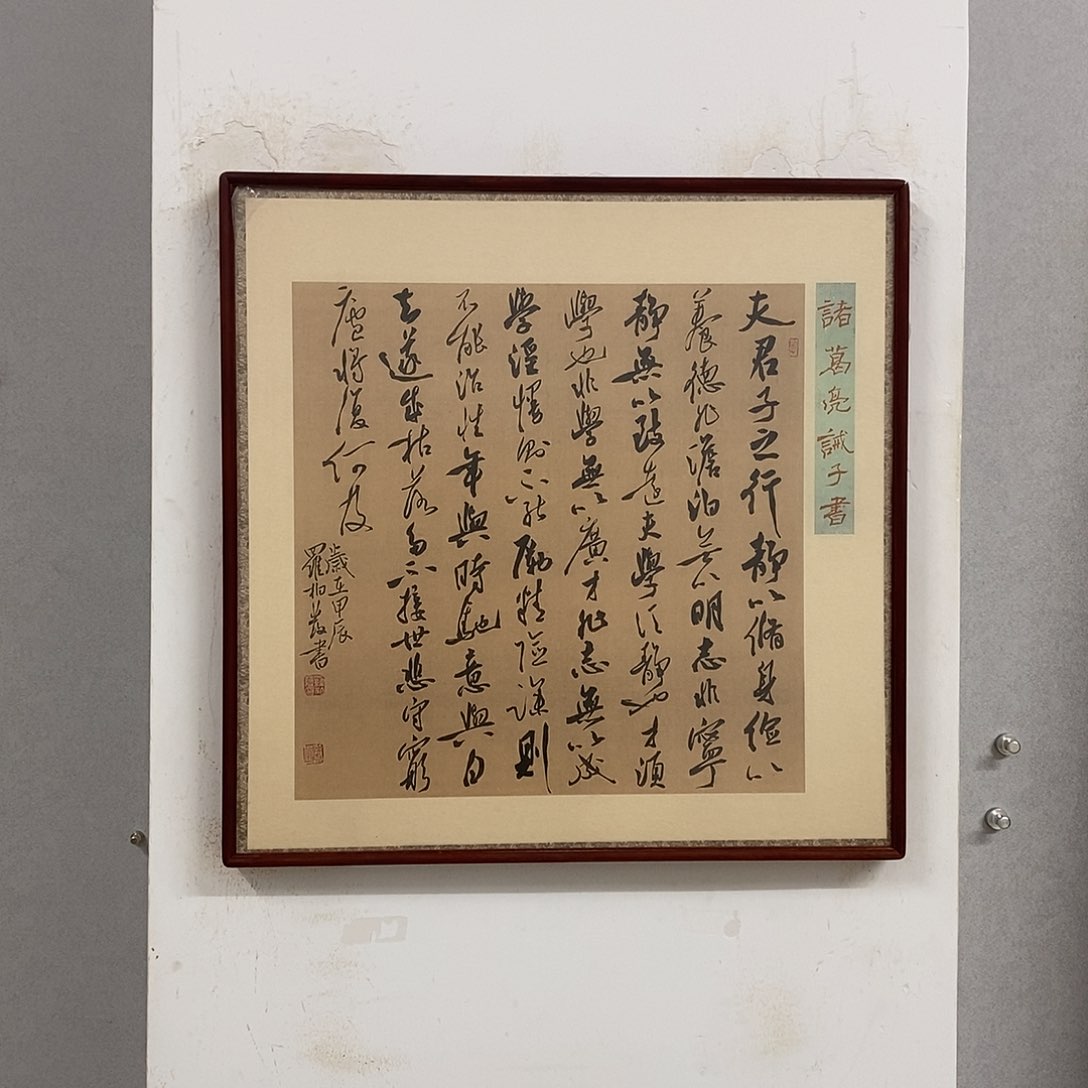 諸葛亮誡子書
夫君子之行靜以脩身儉以
養德非澹泊無以明志非寧
靜無以致遠夫學須靜也才須
學也非學無以廣才非志無以成
學淫慢則不能勵精險躁則
不能治性年與時馳意與日
去遂成枯落多不接世悲守窮
廬將復何及
歲在甲辰
羅柏書